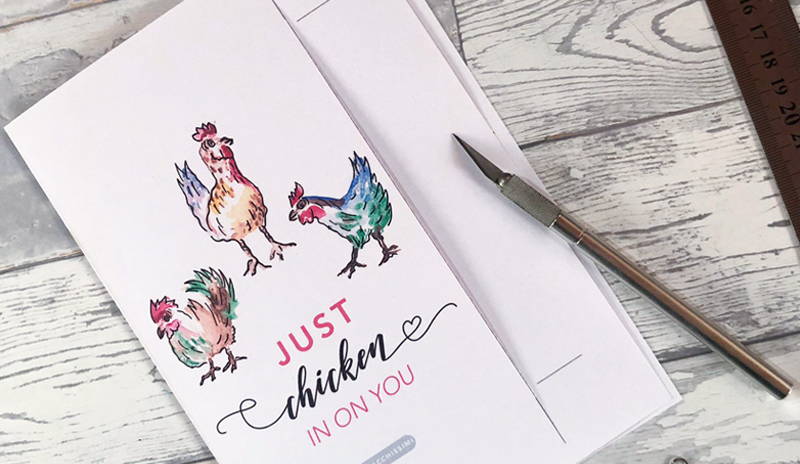 JUST
chicken
IN ON YOU
16 17 18 19 20